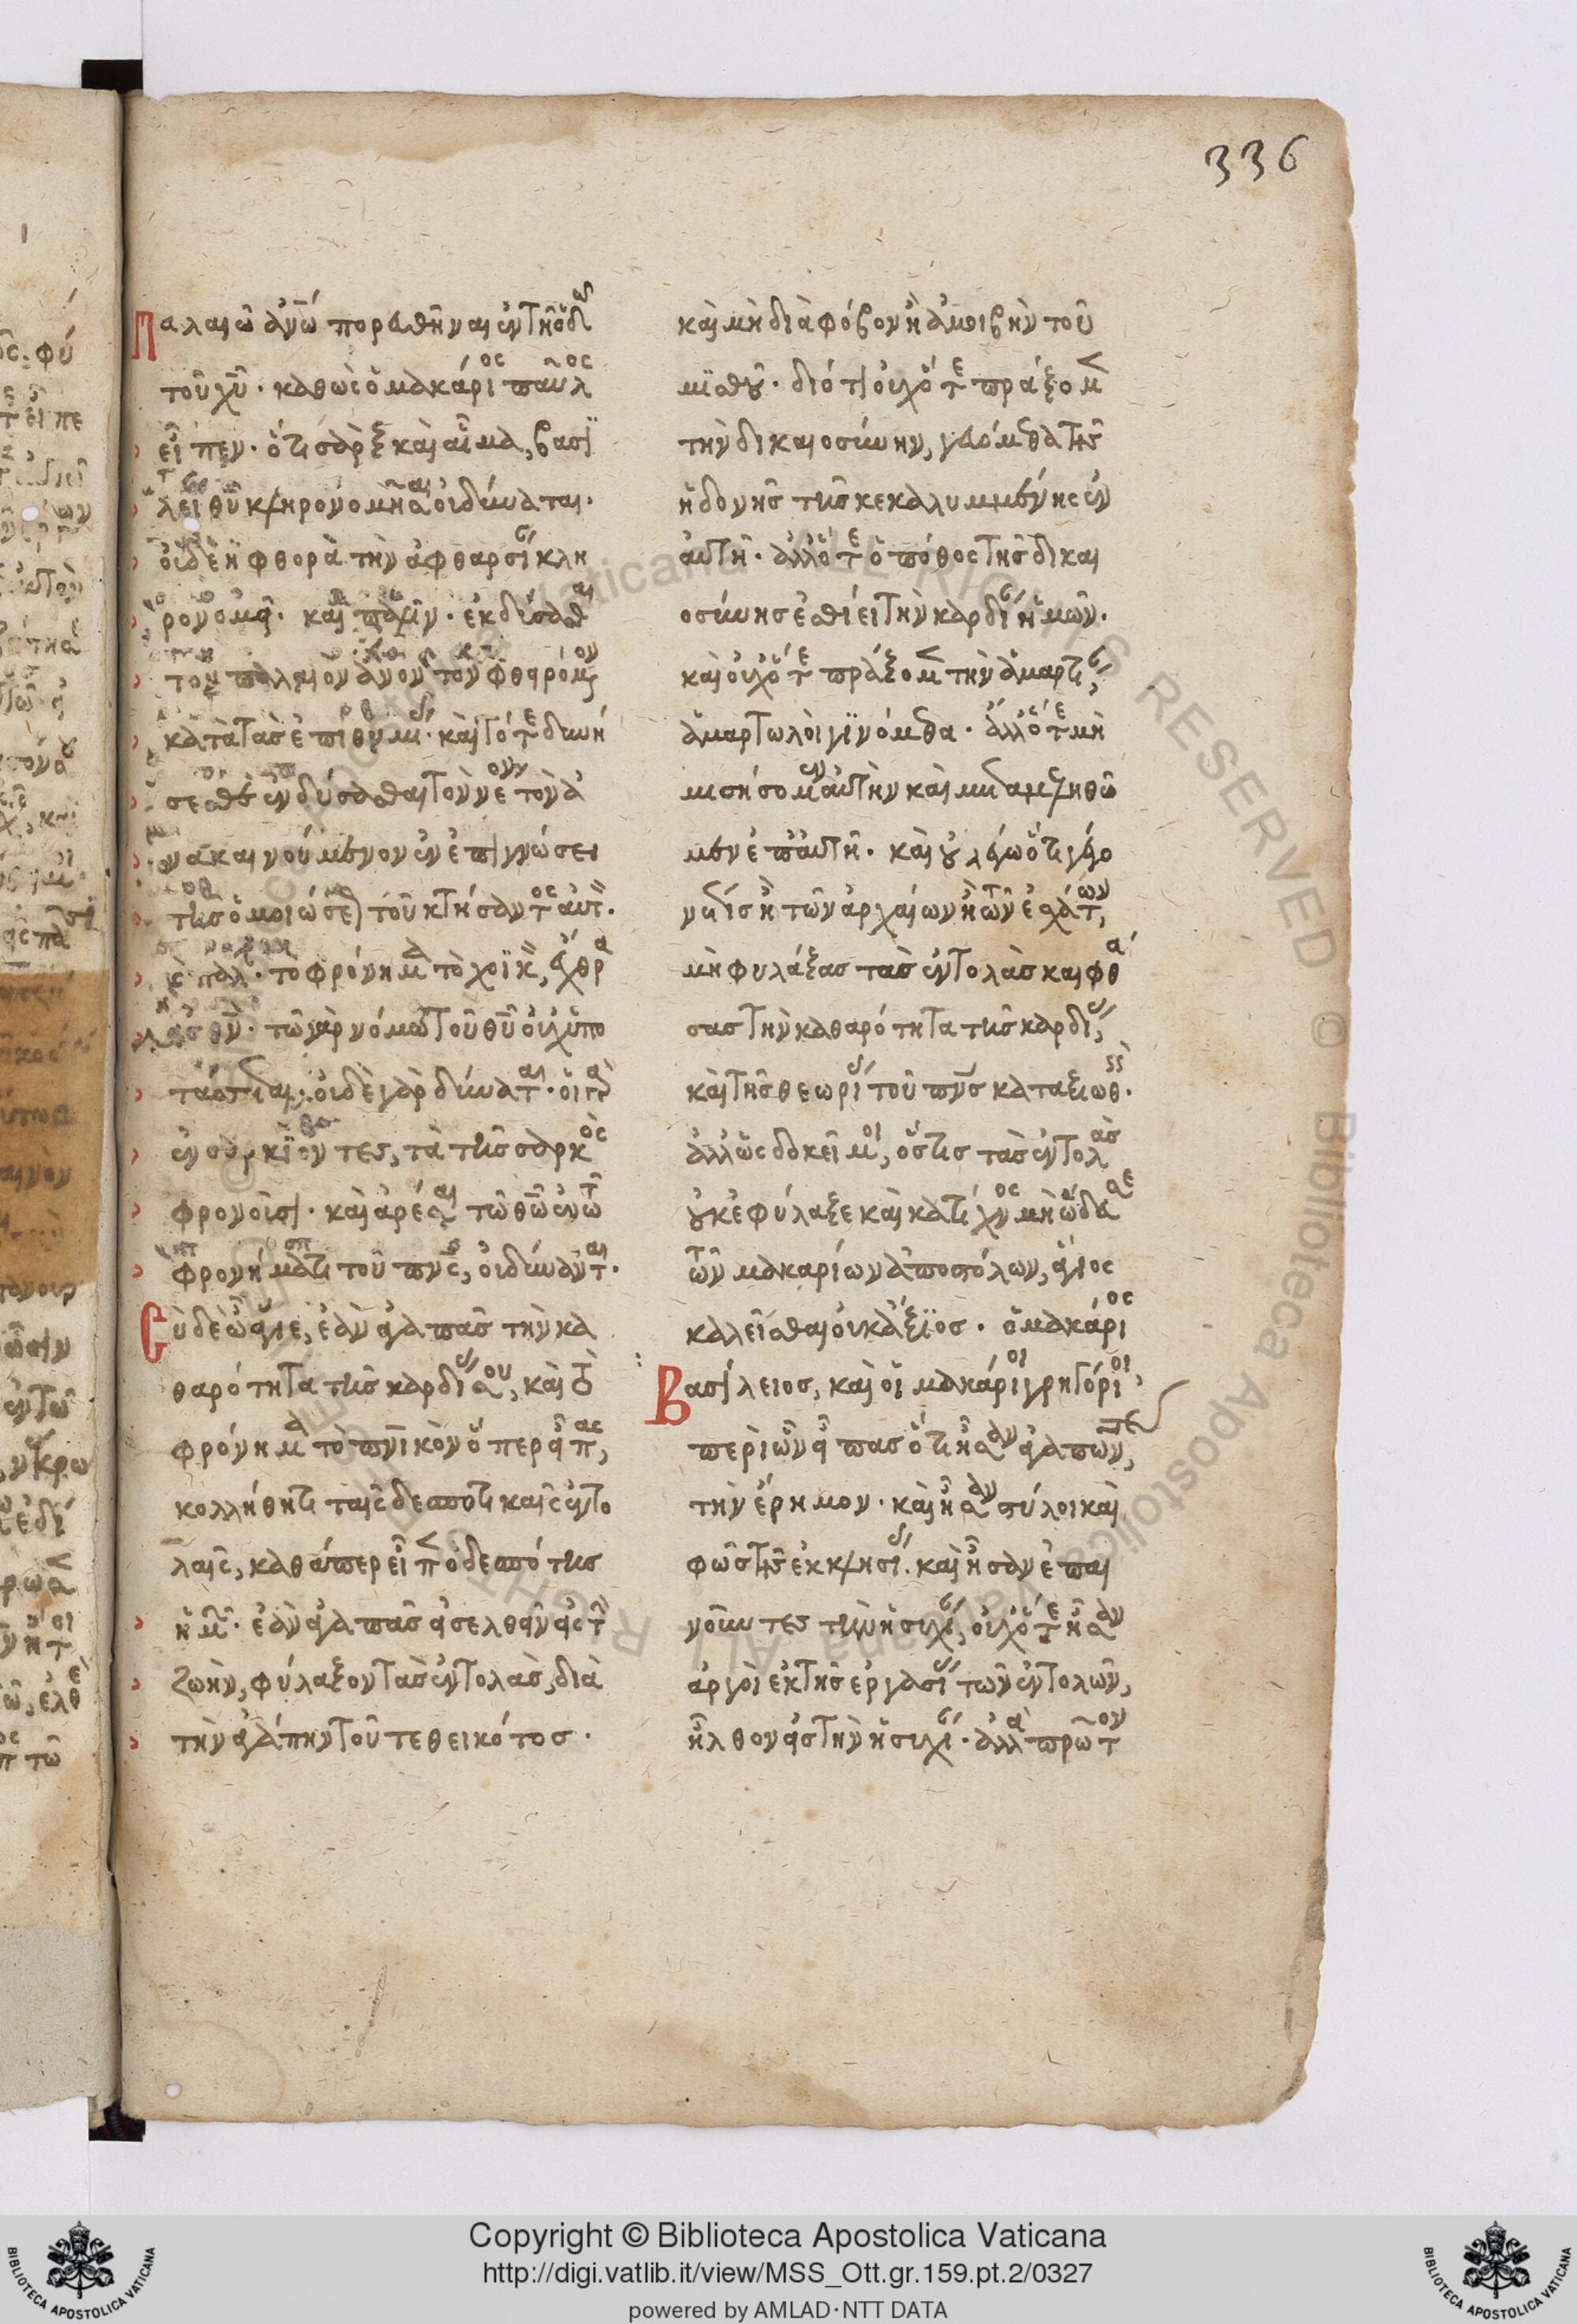 336
Παλαιῶ ἀνῶ πορευθῆναι ἐν τῆ ὁδῶ
τοῦ χυ. καθὼς ὁ μακάριος παῦλος
εἶπεν. ὅτι σὰρξ καὶ αἷμα, βασι
λεί θυ κληρονομῆσαι οὐ δύναται.
οὐδὲ ἡ φθορὰ τὴν ἀφθαρσίαν κλη
ρονομεῖ. καὶ πάλιν. ἐκδύσασθαι
τὸν παλαιὸν ἄνον τὸν φθειρόμ
κατὰ τὰς ἐπιθυμίας. καὶ τότε δυνή
σεσθε ἐνδύσασθαι τὸν νέον τὸν ἀ
νακαινούμενον ἐν ἐπιγνώσει
τῆς ὁμοιώσε τοῦ κτήσαντος αὐτ.
κ παλ. τὸ φρόνημα τὸ χοϊκ, ἔχθρα
εἰς θν. τῶ γὰρ νόμω τοῦ θυ οὐχ ὑπο
τάσσεται. οὐδὲ γὰρ δύναται. οἱ γὰρ
ἐν σαρκὶ ὄντες, τὰ τῆς σαρκὸς
φρονοῦσι. καὶ ἀρέσαι τῶ θῶ ἐν τῶ
φρονήματι τοῦ πνς, οὐ δύναντται.
Σὺ δὲ ὦ φίλε, ἐὰν ἀγαπᾶς τὴν κα
θαρότητα τῆς καρδίας σου, καὶ τὸ
φρόνημα τὸ πνικὸν ὅπερ εἶπας,
κολλήθητι ταῖς δεσποτικαῖς ἐντο
λαῖς, καθάπερ εἶπεν ὁ δεσπότης
ἡμ. ἐὰν ἀγαπᾶς εἰσελθεῖν εἰς τὴν
ζωὴν, φύλαξον τὰς ἐντολὰς, διὰ
τὴν ἀγάπην τοῦ τεθεικότος.
καὶ μὴ διὰ φόβον ἢ ἀμοιβὴν τοῦ
μισθοῦ. διότι οὐχ ὅτε πράξομεν
τὴν δικαιοσύνην, γευόμεθα τῆς
ἡδονῆς τῆς κεκαλυμμένης ἐν
αὐτῆ. ἀλλ' ὅτε ὁ πόθος τῆς δικαι
οσύνης ἐσθίει τὴν καρδίαν ἡμῶν.
καὶ οὐχ ὅτε πράξομεν τὴν ἁμαρτίαν,
ἁμαρτωλοὶ γινόμεθα. ἀλλ' ὅτε μὴ
μισήσομεν αὐτὴν καὶ μεταμεληθῶ
μεν ἐπ' αὐτῆ. καὶ οὐ λέγω ὅτι
τις ἢ τῶν ἀρχαίων ἢ τῶν ἐσχάτων,
μὴ φυλάξας τὰς ἐντολὰς καὶ φθά
σας τὴν καθαρότητα τῆς καρδίας,
καὶ τῆς θεωρίας τοῦ πνς καταξιωθ.
ἀλλ' ὡς δοκεῖ μοι, ὅστις τὰς ἐντολὰς
οὐκ ἐφύλαξε καὶ κατ' ἴχνος μὴ ὥδευσε
τῶν μακαρίων ἀποστόλων, ἅγιος
καλεῖσθαι οὐκ ἄξιος. ὁ μακάριος
Βασίλειος, καὶ οἱ μακάριοι γρηγόριοι,
περὶ ὧν εἶπας ὅτι ἦσαν ἀγαπῶντες,
τὴν ἔρημον. καὶ ἦσαν στύλοι καὶ
φῶς τῆς ἐκκλησίας. καὶ ἦσαν ἐπαι
νοῦντες τὴν ἡσυχίαν, οὐχ ὅτε ἦσαν
ἀργοὶ ἐκ τῆς ἐργασίας τῶν ἐντολῶν,
ἦλθον εἰς τὴν ἡσυχίαν. ἀλλὰ πρῶτον
Copyright © Biblioteca Apostolica Vaticana
http://digi.vatlib.it/view/MSS_Ott.gr.159.pt.2/0327
powered by AMLAD·NTT DATA
BIBLIOTECA APOSTOLICA VATICANA
BIBLIOTECA APOSTOLICA VATICANA